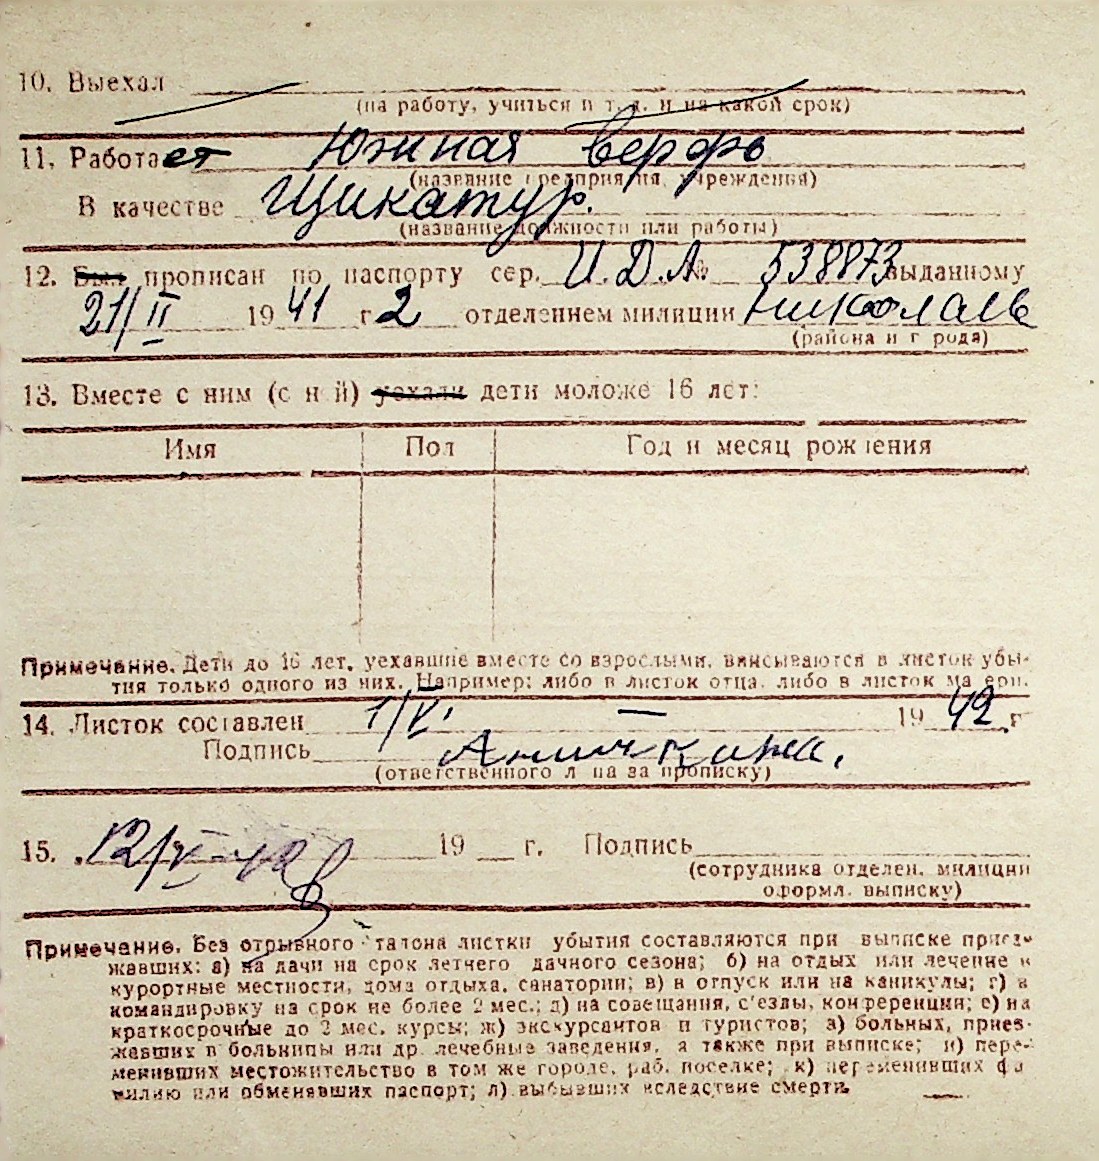 10. Выехал
(на работу, учиться и т. д. и на какой срок)
11. Работает Южная верфь
(название предприятия, учреждения)
В качестве Щикатур.
(название должности или работы)
12. Был прописан по паспорту сер. И.Д.А № 538873 выданному
21/II 1941 г 2 отделением милиции Николаев
(района и города)
13. Вместе с ним (с ней) уехали дети моложе 16 лет:
Имя Пол Год и месяц рождения
Примечание. Дети до 16 лет, уехавшие вместе со взрослыми, вписываются в листок убы-
тия только одного из них. Например: либо в листок отца, либо в листок матери.
14. Листок составлен 1/VI. — 1942 г
Подпись
(ответственного лица за прописку)
15. 12/VI-42 19 г. Подпись
(сотрудника отделен. милиции
оформл. выписку)
Примечание. Без отрывного талона листки убытия составляются при выписке приез-
жавших: а) на дачи на срок летнего дачного сезона; б) на отдых или лечение в
курортные местности, дома отдыха, санатории; в) в отпуск или на каникулы; г) в
командировку на срок не более 2 мес.; д) на совещания, с'езды, конференции; е) на
краткосрочные до 2 мес. курсы; ж) экскурсантов и туристов; з) больных, приез-
жавших в больницы или др. лечебные заведения, а также при выписке; и) пере-
менивших местожительство в том же городе, раб. поселке; к) переменивших фа
милию или обменявших паспорт; л) выбывших вследствие смерти.